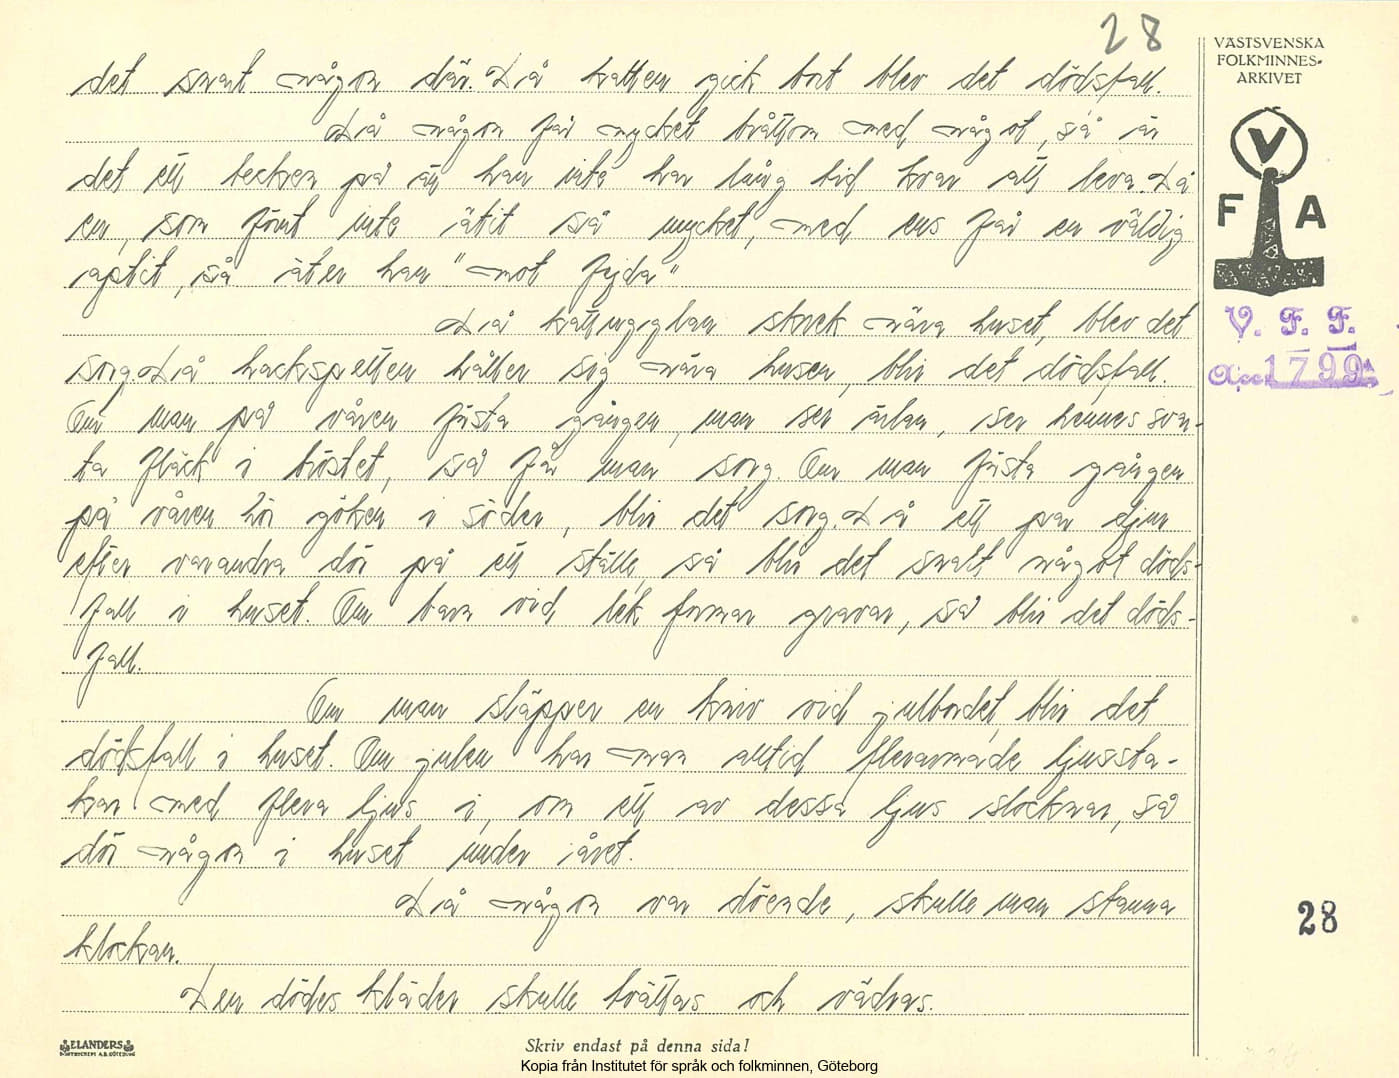 28
VÄSTSVENSKA
FOLKMINNES-
ARKIVET
V
F A
V. F. F.
Acc 1799
det snart någon där. Då katten gick bort blev det dödsfall.
Då någon får mycket bråttom med något, så är
det ett tecken på att han inte har lång tid kvar att leva. Då
en, som förut inte ätit så mycket, med ens får en väldig
aptit, så äter han "mot fejda"
Då kattugglan skrek nära huset, blev det
sorg. Då hackspetten håller sig nära husen, blir det dödsfall.
Om man på våren första gången, man ser ärlan, ser hennes svar-
ta fläck i bröstet, så får man sorg. Om man första gången
på våren hör göken i söder, blir det sorg. Då ett par djur
efter varandra dör på ett ställe, så blir det snart något döds-
fall i huset. Om barn vid lek formar gravar, så blir det döds-
fall.
Om man släpper en kniv vid julbordet, blir det
dödsfall i huset. Om julen har man alltid flerarmade ljussta-
kar med flera ljus i, om ett av dessa ljus slocknar, så
dör någon i huset under året.
Då någon var döende, skulle man stanna
klockan.
Den dödes kläder skulle tvättas och vädras.
28
ELANDERS
Skriv endast på denna sida!
Kopia från Institutet för språk och folkminnen, Göteborg